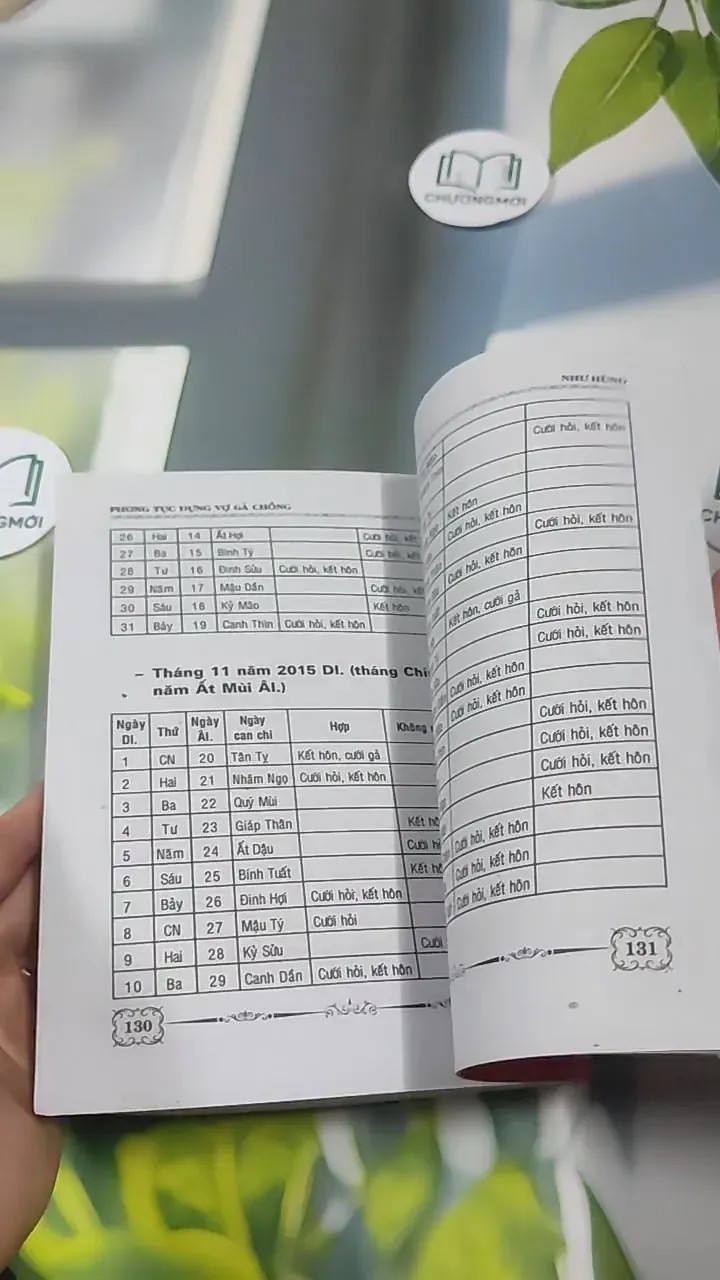 CHƯƠNGMỚI
GMỚI
PHONG TỤC DỰNG VỢ GẢ CHỒNG
26 Hai 14 Ất Hợi Cưới hỏi, kết
27 Ba 15 Bính Tý Cưới hỏi, kết
28 Tư 16 Đinh Sửu Cưới hỏi, kết hôn
29 Năm 17 Mậu Dần Cưới hỏi, kết
30 Sáu 18 Kỷ Mão Kết hôn
31 Bảy 19 Canh Thìn Cưới hỏi, kết hôn
– Tháng 11 năm 2015 Dl. (tháng Chí
năm Ất Mùi Âl.)
Ngày Dl. Thứ Ngày Âl. Ngày can chi Hợp Không
1 CN 20 Tân Tỵ Kết hôn, cưới gả
2 Hai 21 Nhâm Ngọ Cưới hỏi, kết hôn
3 Ba 22 Quý Mùi
4 Tư 23 Giáp Thân Kết hô
5 Năm 24 Ất Dậu Cưới hỏ
6 Sáu 25 Bính Tuất Kết hô
7 Bảy 26 Đinh Hợi Cưới hỏi, kết hôn
8 CN 27 Mậu Tý Cưới hỏi
9 Hai 28 Kỷ Sửu Cưới
10 Ba 29 Canh Dần Cưới hỏi, kết hôn
130
NHƯ HÙNG
Cưới hỏi, kết hôn
Kết hôn
Cưới hỏi, kết hôn
Cưới hỏi, kết hôn
Cưới hỏi, kết hôn
Kết hôn, cưới gả
Cưới hỏi, kết hôn
Cưới hỏi, kết hôn
Cưới hỏi, kết hôn
Cưới hỏi, kết hôn
Cưới hỏi, kết hôn
Cưới hỏi, kết hôn
Cưới hỏi, kết hôn
Kết hôn
Cưới hỏi, kết hôn
Cưới hỏi, kết hôn
Cưới hỏi, kết hôn
131